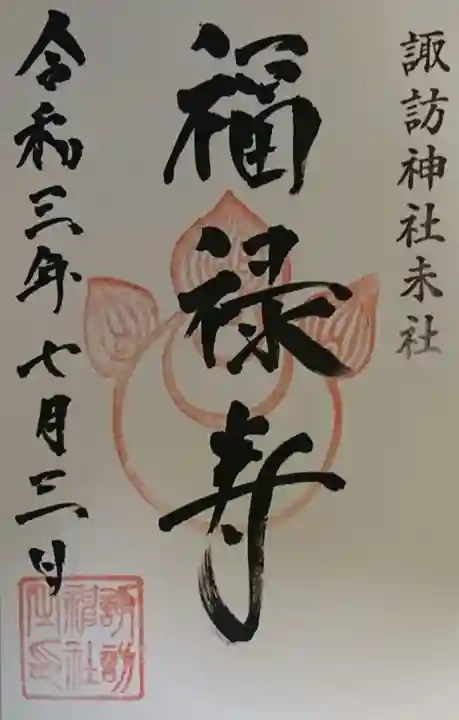 諏訪神社末社
福禄寿
令和三年七月三日
諏訪
神社
之印